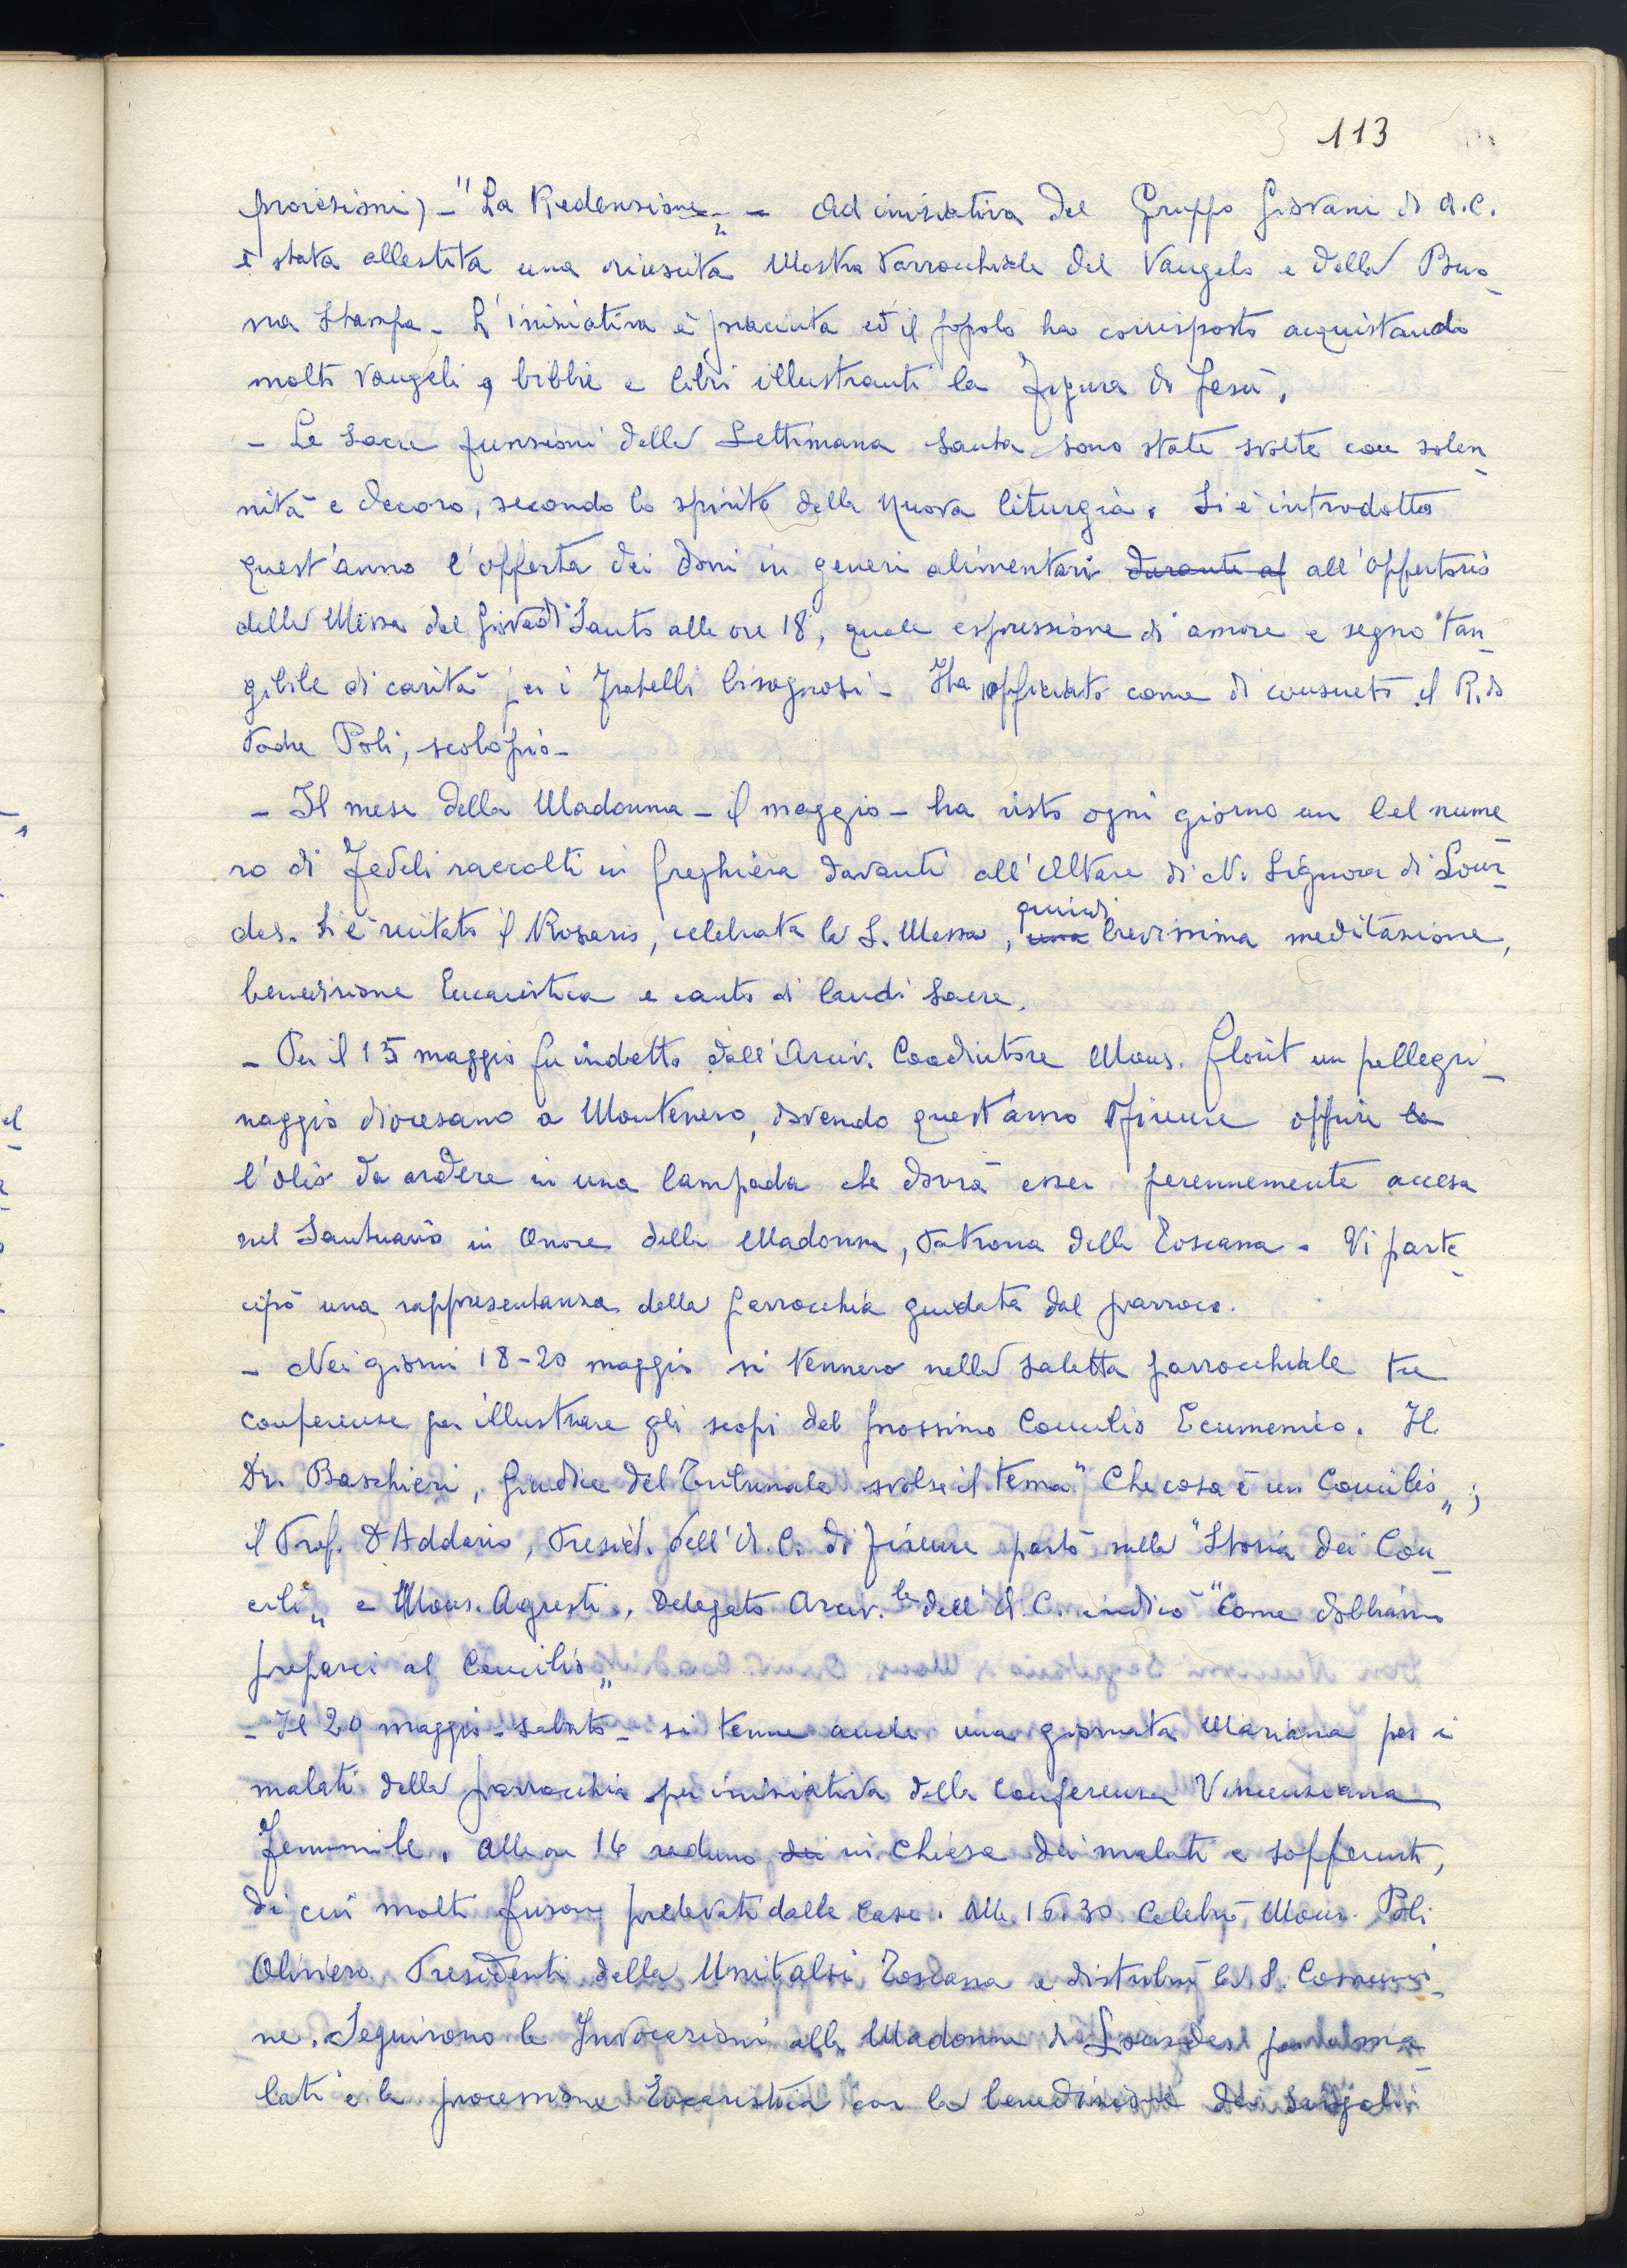 113
proiezioni) - "La Redenzione„ - Ad iniziativa del Gruppo Giovani di A.C.
è stata allestita una riuscita Mostra Parrocchiale del Vangelo e della Buo-
na Stampa - L'iniziativa è piaciuta ed il popolo ha corrisposto acquistando
molti Vangeli, bibbie e libri illustranti la Figura di Gesù.
- Le Sacre funzioni della Settimana Santa sono state svolte con solen-
nità e decoro, secondo lo spirito della nuova liturgia. Si è introdotto
quest'anno l'offerta dei doni in generi alimentari durante al all'offertorio
della Messa del Giovedì Santo alle ore 18, quale espressione di amore e segno tan-
gibile di carità per i fratelli bisognosi - Ha officiato come di consueto il R.do
Padre Poli, scolopio -
- Il mese della Madonna - il maggio - ha visto ogni giorno un bel nume-
ro di Fedeli raccolti in preghiera davanti all'Altare di N. Signora di Lour-
des. Si è recitato il Rosario, celebrata la S. Messa, una quindi brevissima meditazione,
benedizione Eucaristica e canto di laudi sacre.
- Per il 15 maggio fu indetto dall'Arciv. Coadiutore Mons. Florit un pellegri-
naggio diocesano a Montenero, dovendo quest'anno Firenze offrire la
l'olio da ardere in una lampada che dovrà esser perennemente accesa
nel Santuario in Onore della Madonna, Patrona della Toscana. Vi parte-
cipò una rappresentanza della parrocchia guidata dal parroco.
- Nei giorni 18-20 maggio si tennero nella saletta parrocchiale tre
conferenze per illustrare gli scopi del prossimo Concilio Ecumenico. Il
Dr. Baschieri, Giudice del Tribunale svolse il tema "Che cosa è un Concilio„;
il Prof. D'Addario, Presid. dell'A.C. di Firenze parlò sulla "Storia dei Con-
cili„ e Mons. Agresti, Delegato Arciv.le dell'A.C. indicò "Come dobbiamo
preparci al Concilio„
- Il 20 maggio - sabato - si tenne anche una giornata Mariana per i
malati della parrocchia per iniziativa della Conferenza Vincenziana
Femminile. Alle ore 16 raduno dei in Chiesa dei malati e sofferenti,
di cui molti furono prelevati dalle case. Alle 16.30 Celebrò Mons. Poli
Oliviero Presidente della Unitalsi Toscana e distribuì la S. Comunio-
ne. Seguirono le Invocazioni alla Madonna di Lourdes per i ma-
lati e la processione Eucaristica con la benedizione dei singoli